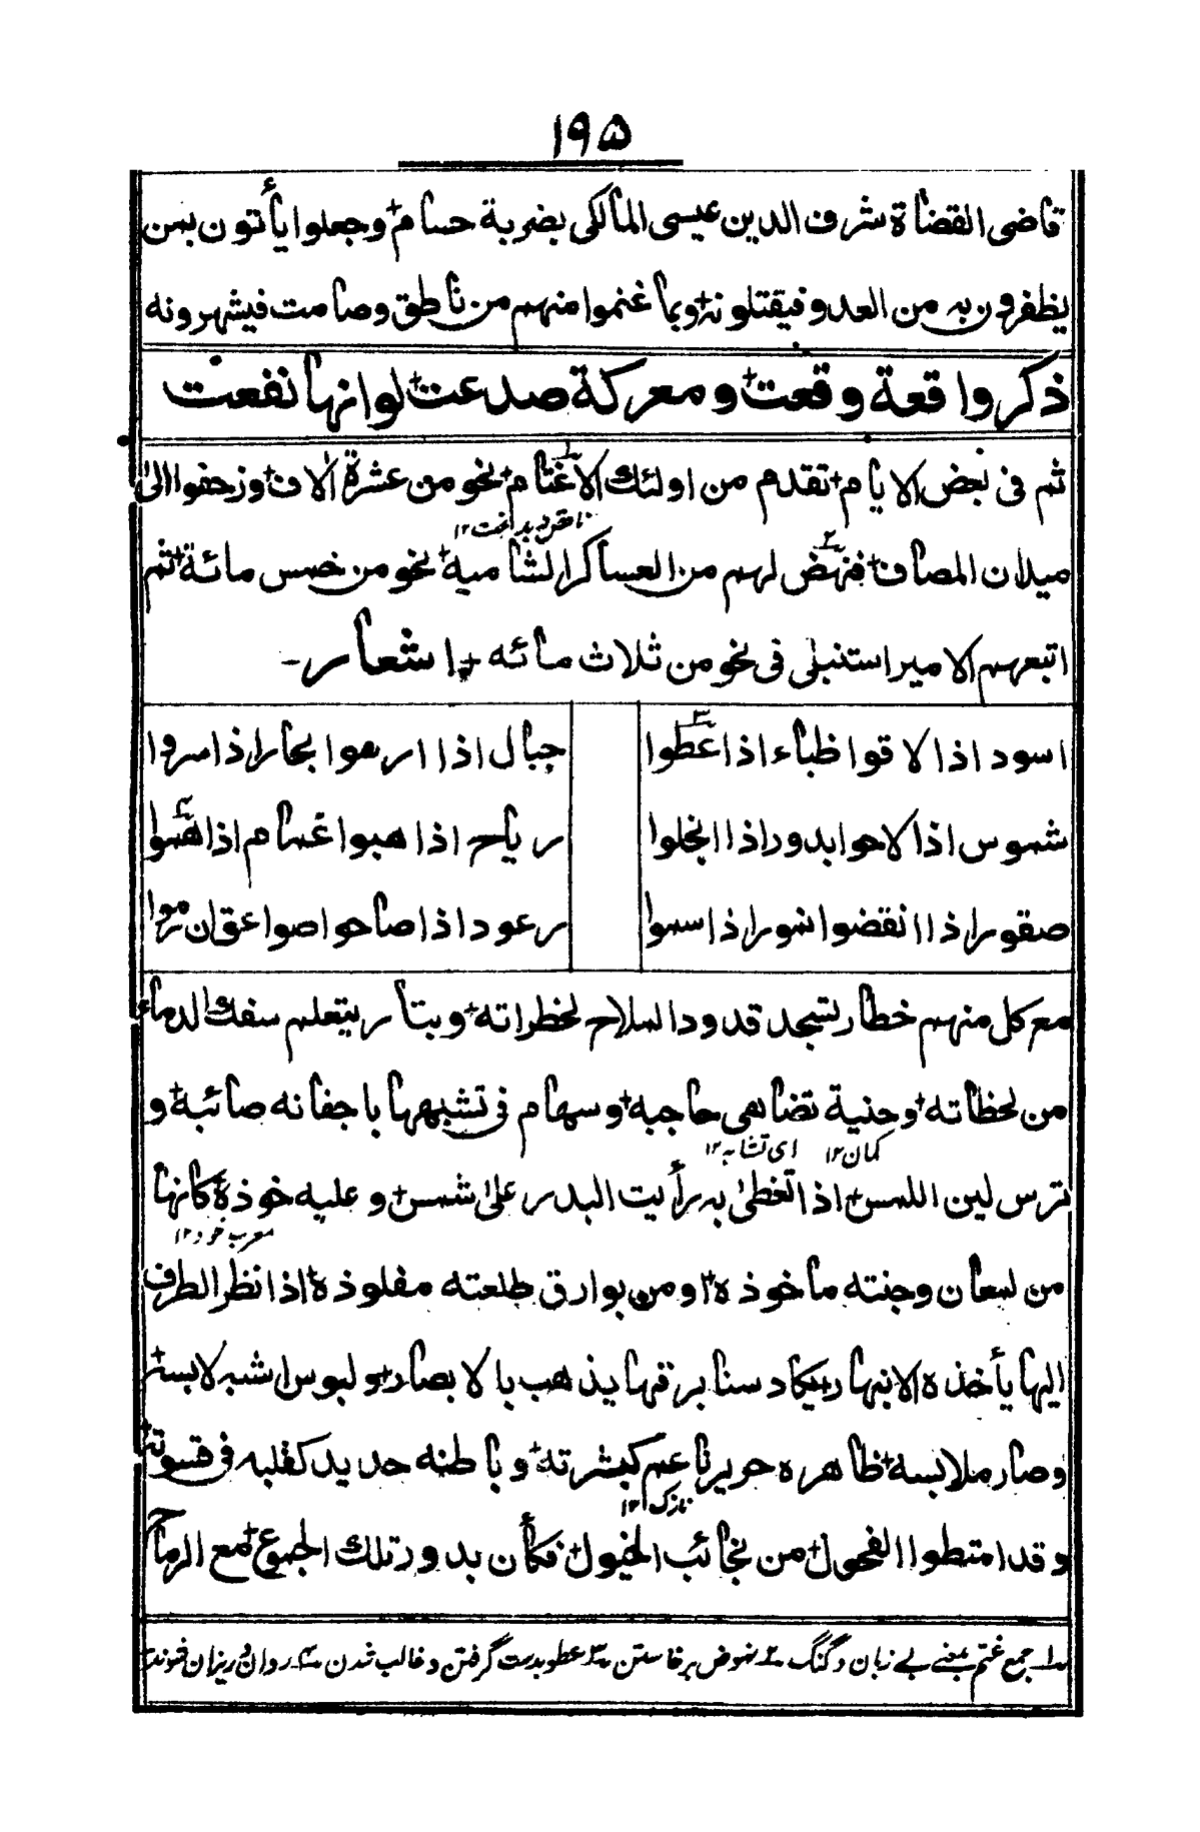 ١٩٥
قاضى القضاة شرف الدين عيسى المالكى بضربة حسام+ وجعلوا يأتون بمن
يظفرون به من العدو فيقتلونه+ وبما غنموا منهم من ناطق وصامت فيشهرونه
ذكر واقعة وقعت+ ومعركة صدعت+ لو انها نفعت
ثم فى بعض الايام+ تقدم من اولئك الاغتام+ نحو من عشرة الاف+ وزحفوا الى
ميدان المصاف+ فنهض لهم من العساكر الشاميه+ نحو من خمس مائة+ ثم
اتبعهم الامير استنبلى فى نحو من ثلاث مائه +، اشعار -
اسود اذا لاقوا ظباء اذا عطوا
جبال اذا ارسوا بحار اذا سروا
شموس اذا لاحوا بدور اذا انجلوا
رياح اذا هبوا غمام اذا هموا
صقور اذا انقضوا نمور اذا سموا
رعود اذا صاحوا صواعق ان رموا
مع كل منهم خطار تسجد قدود الملاح لخطراته+ وبتار يتعلم سفك الدماء
من لحظاته+ وحنية تضاهى حاجبه+ وسهام فى تشبهها باجفانه صائبة+ و
كمان ١٢ اى تشابه ١٢
ترس لين اللمس+ اذا تغطى به رأيت البدر على شمس+ وعليه خوذة كانها
معرب خود ١٢
من لمعان وجنته ماخوذه+ او من بوارق طلعته مفلوذة+ اذا نظر الطرف
اليها يأخذه الانبهار+ يكاد سنا برقها يذهب بالابصار+ ولبوس اشبه لابسه+
وصار ملابسه+ ظاهره حرير ناعم كبشرته+ وباطنه حديد كقلبه فى قسوته+
نازك ١٢
وقد امتطوا الفحول+ من نجائب الخيول+ فكأن بدور تلك الجموع+ مع الرماح
١ جمع غتم بمعنے بے زبان و گنگ ٢ نهوض برخاستن ٣ عطو بدست گرفتن و غالب شدن ٤ روان و ريزان